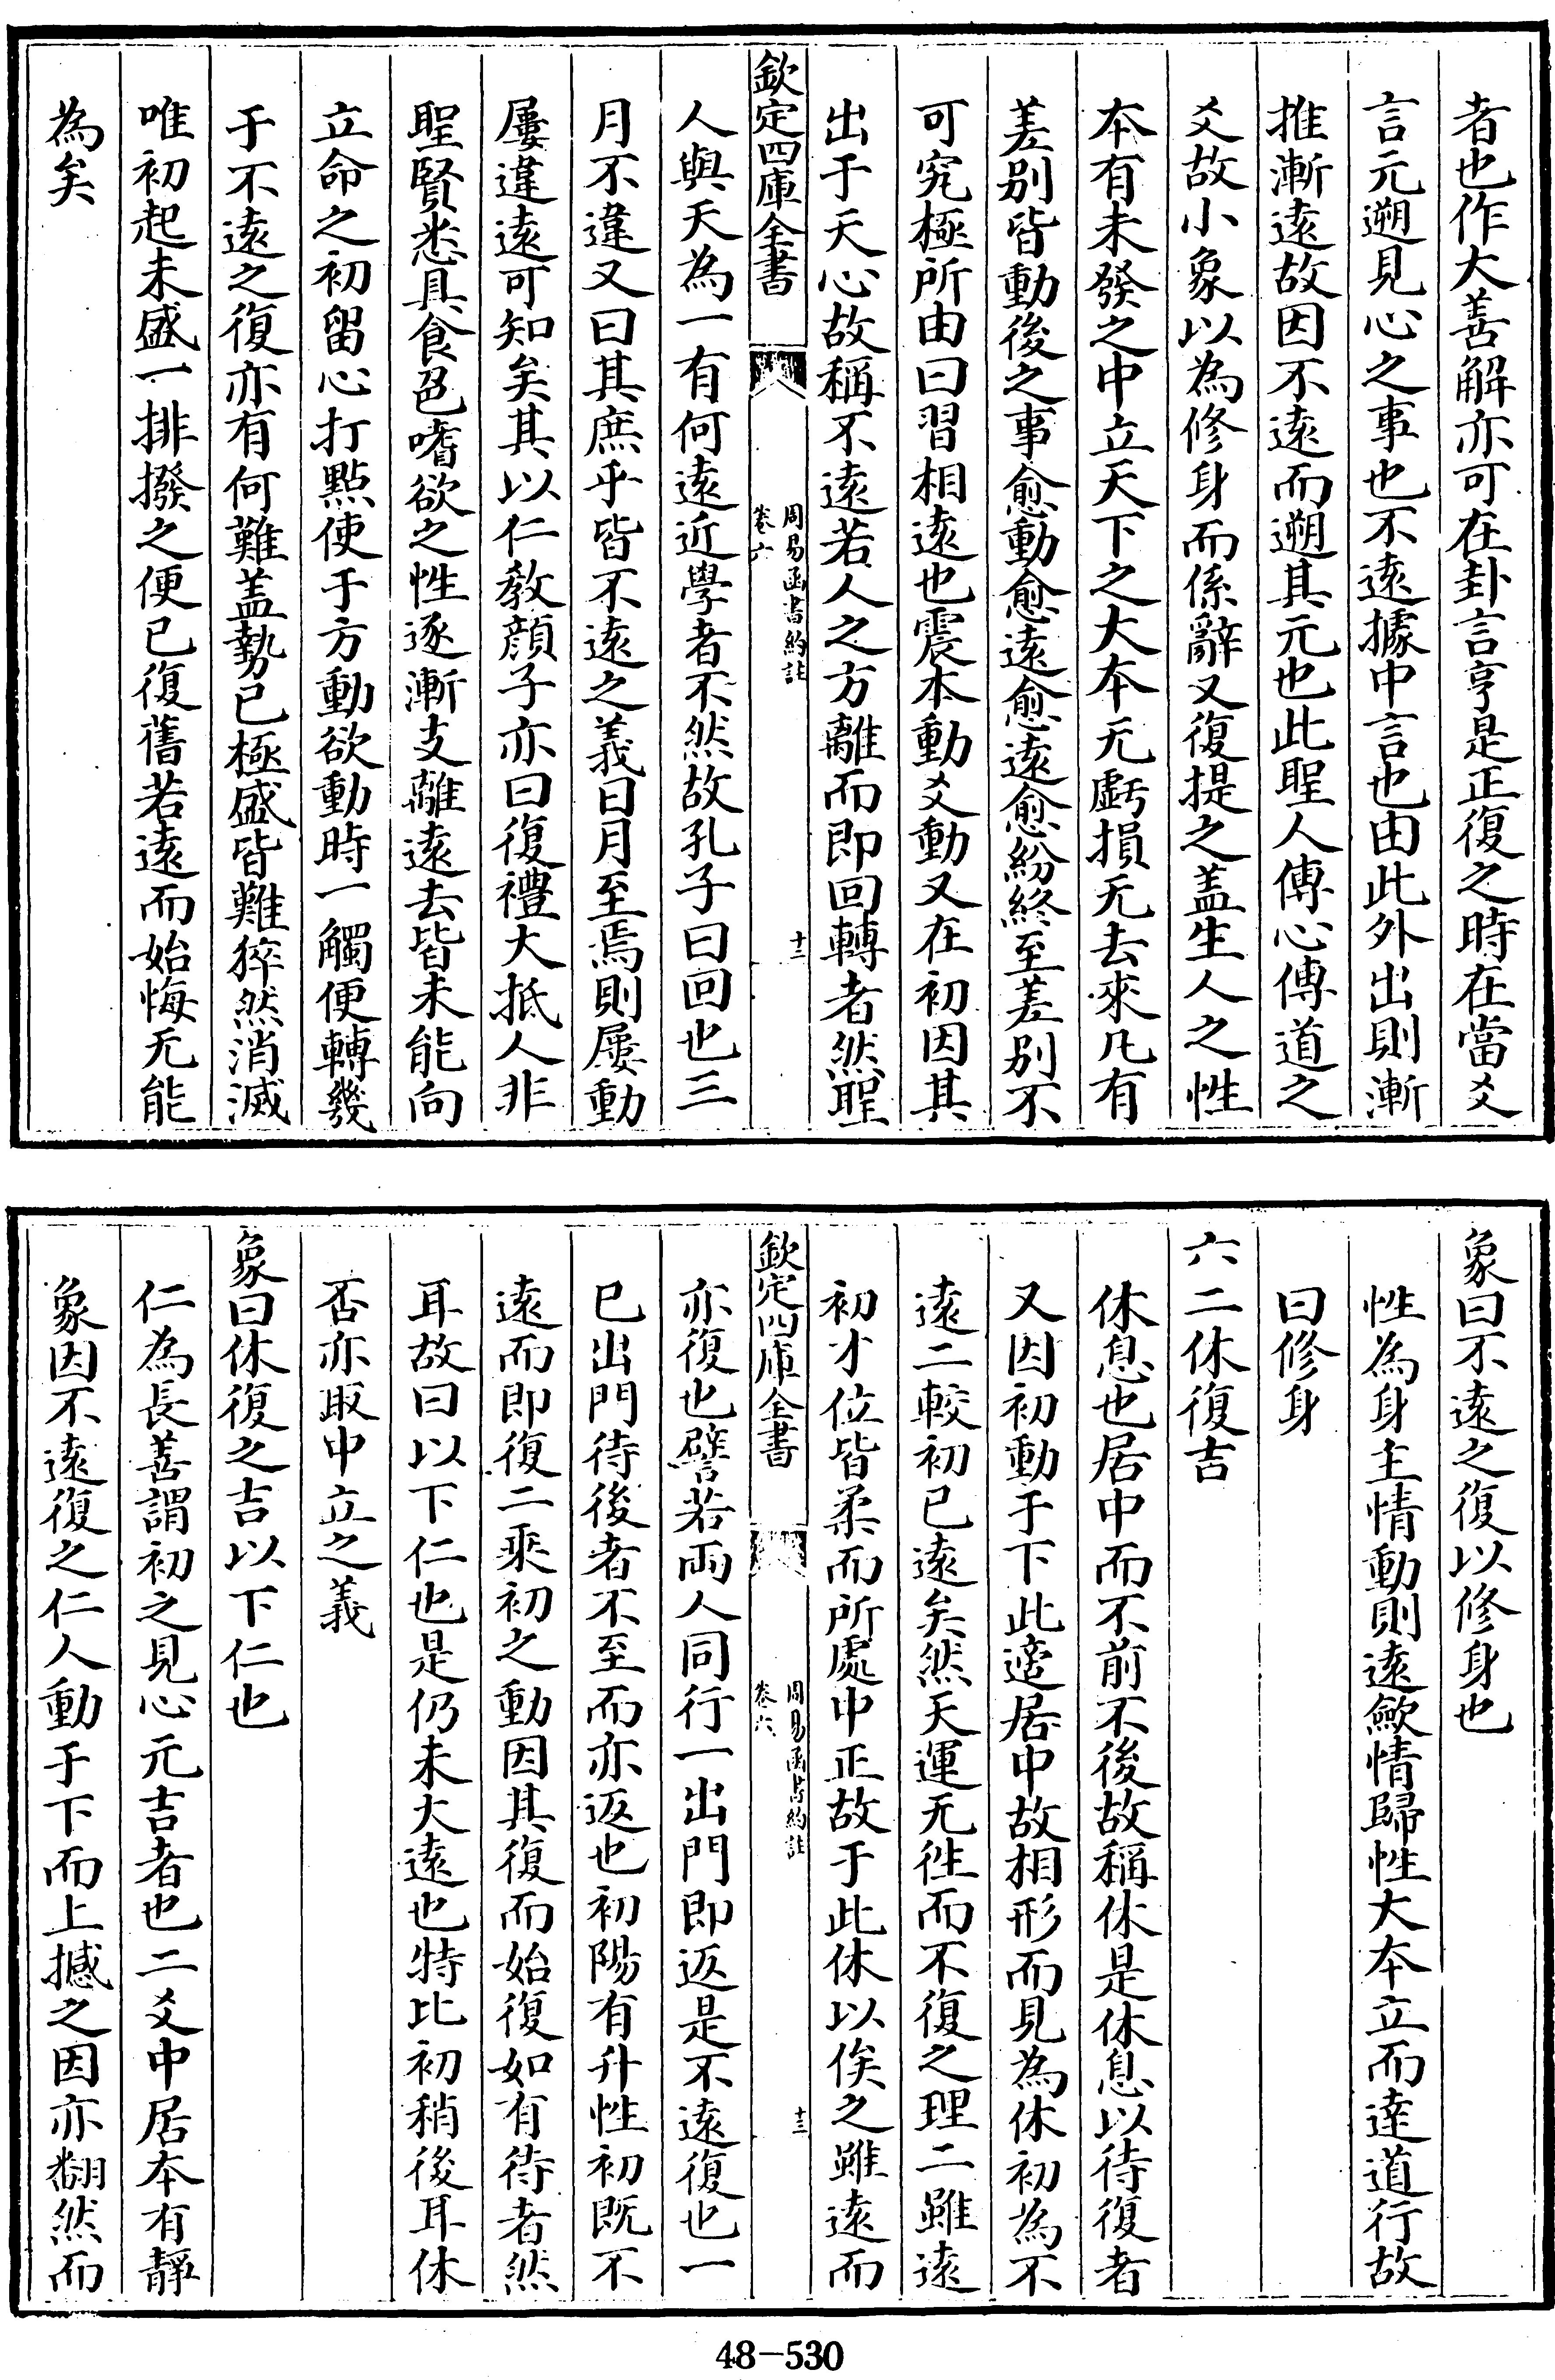 者也作大善解亦可在卦言亨是正復之時在當爻
言元遡見心之事也不遠據中言也由此外出則漸
推漸遠故因不遠而遡其元也此聖人傳心傳道之
爻故小象以為修身而係辭又復提之盖生人之性
本有未發之中立天下之大本无虧損无去來凡有
差别皆動後之事愈動愈遠愈遠愈紛終至差别不
可究極所由曰習相遠也震本動爻動又在初因其
出于天心故稱不遠若人之方離而即回轉者然聖
欽定四庫全書
周易函書約註
卷六
十三
人與天為一有何遠近學者不然故孔子曰回也三
月不違又曰其庶乎皆不遠之義日月至焉則屢動
屢違遠可知矣其以仁教顔子亦曰復禮大抵人非
聖賢悉具食色嗜欲之性逐漸支離遠去皆未能向
立命之初留心打點使于方動欲動時一觸便轉幾
于不遠之復亦有何難盖勢已極盛皆難猝然消滅
唯初起未盛一排撥之便已復舊若遠而始悔无能
為矣
象曰不遠之復以修身也
性為身主情動則遠歛情歸性大本立而達道行故
曰修身
六二休復吉
休息也居中而不前不後故稱休是休息以待復者
又因初動于下此適居中故相形而見為休初為不
遠二較初已遠矣然天運无徃而不復之理二雖遠
初才位皆柔而所處中正故于此休以俟之雖遠而
欽定四庫全書
周易函書約註
卷六
十三
亦復也譬若兩人同行一出門即返是不遠復也一
已出門待後者不至而亦返也初陽有升性初既不
遠而即復二乘初之動因其復而始復如有待者然
耳故曰以下仁也是仍未大遠也特比初稍後耳休
否亦取中立之義
象曰休復之吉以下仁也
仁為長善謂初之見心元吉者也二爻中居本有靜
象因不遠復之仁人動于下而上撼之因亦翻然而
48-530